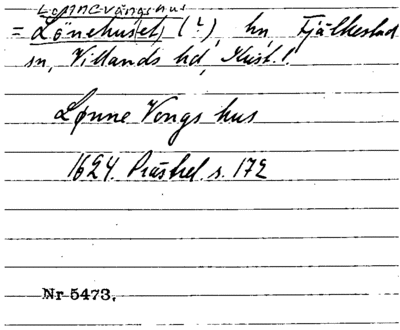 Lønnevångshus
= Lönehus(et) (?), hn, Fjälkestad
sn, Villands hd, Krist. l.
Lønne Vongs hus
1624. Prästrel. s. 172
Nr 5473.